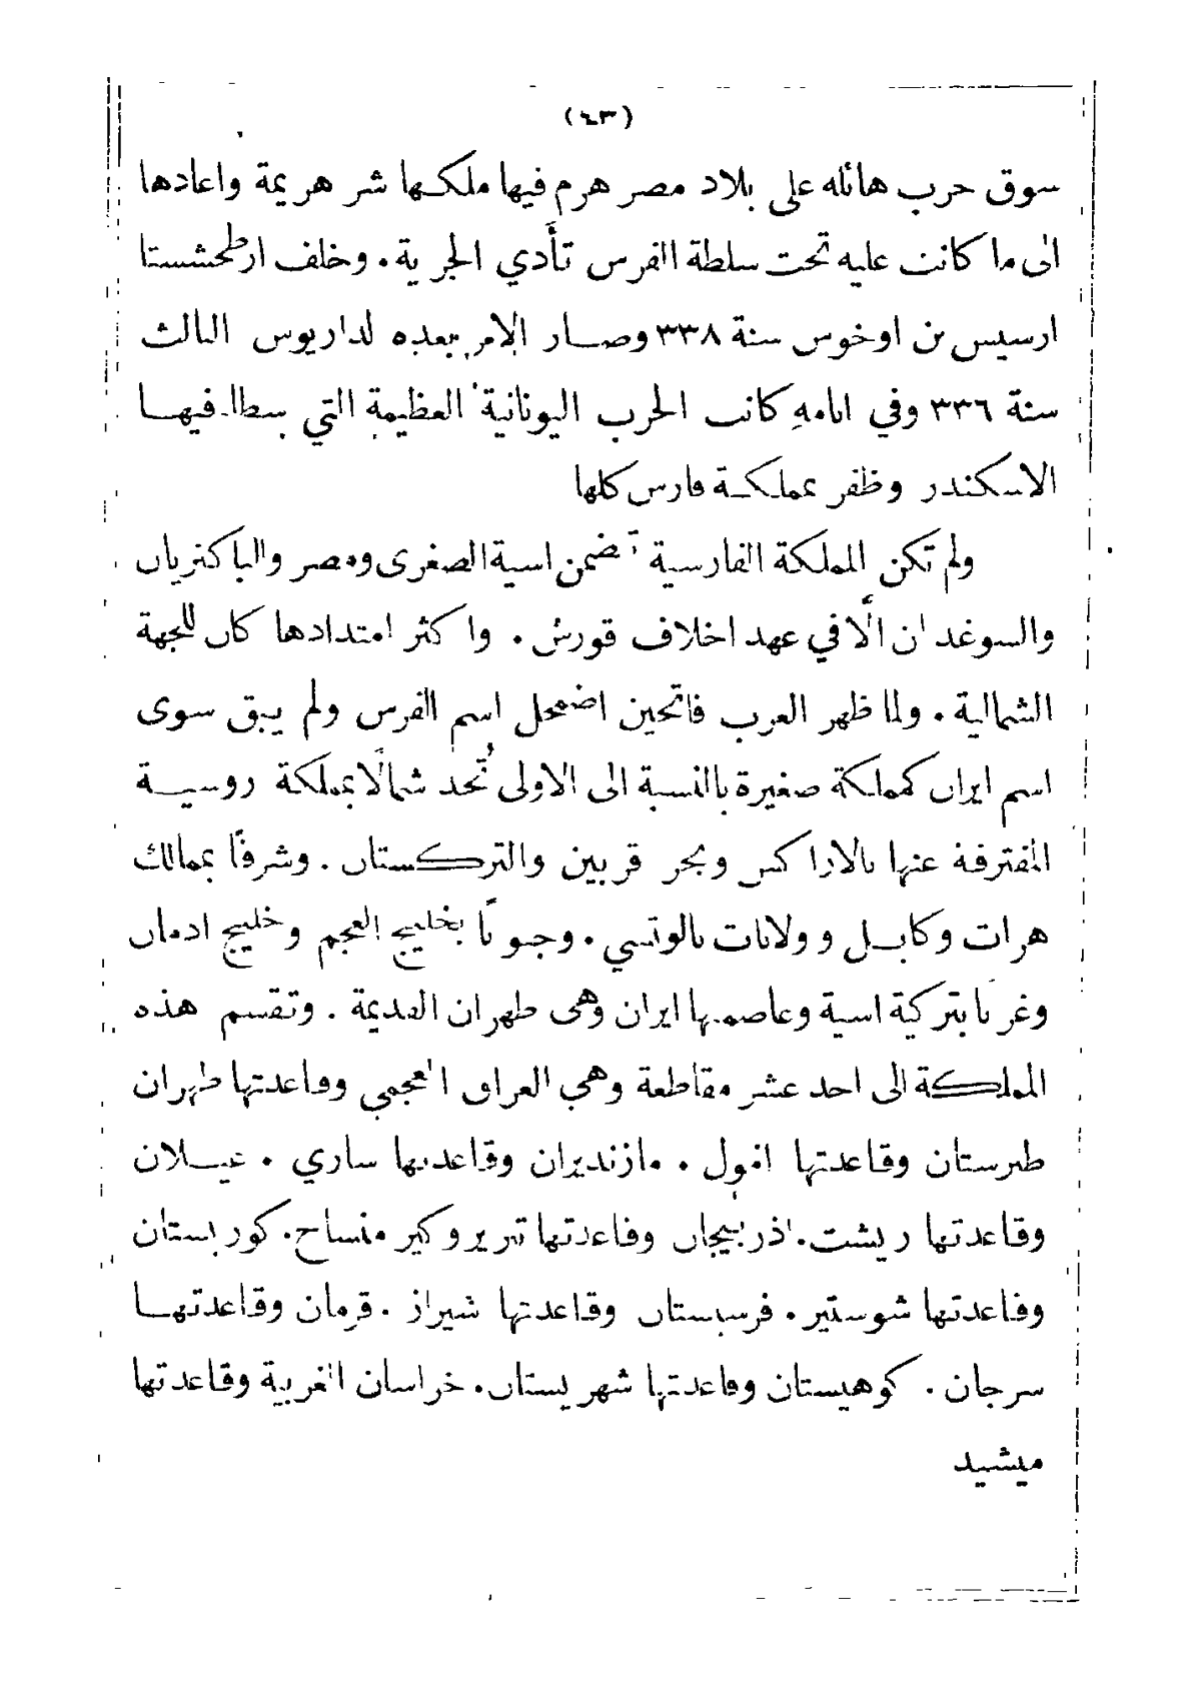 (٤٣)
سوق حرب هائله على بلاد مصر هرم فيها ملكها شر هريمة واعادها
الى ما كانت عليه تحت سلطة الفرس تأدي الجرية. وخلف ارطحشستا
ارسيس بن اوخوس سنة ٣٣٨ وصار الامر بعده لداريوس الثالث
سنة ٣٣٦ وفي ايامهِ كانت الحرب اليونانية العظيمة التي سطا فيها
الاسكندر وظفر بمملكة فارس كلها
ولم تكن المملكة الفارسية تضمن اسية الصغرى ومصر والباكتريان
والسوغدان الّا في عهد اخلاف قورش. واكثر امتدادها كان للجهة
الشمالية. ولما ظهر العرب فاتحين اضمحل اسم الفرس ولم يبق سوى
اسم ايران كمملكة صغيرة بالنسبة الى الاولى تُحد شمالًا بمملكة روسية
المفترقة عنها بالاراكس وبحر قربين والتركستان. وشرقًا بممالك
هرات وكابل وولايات بالوتسي. وجنوبًا بخليج العجم وخليج ادمان
وغربًا بتركية اسية وعاصمتها ايران وهى طهران القديمة. وتقسم هذه
المملكة الى احد عشر مقاطعة وهي العراق العجمي وقاعدتها طهران
طبرستان وقاعدتها امول. مازنديران وقاعدتها ساري. غيلان
وقاعدتها ريشت. اذربيجان وقاعدتها تبريز وكير منساح. كوربستان
وقاعدتها شوستير. فرسستان وقاعدتها شيراز. قرمان وقاعدتها
سرجان. كوهيستان وقاعدتها شهريستان. خراسان الغربية وقاعدتها
ميشيد